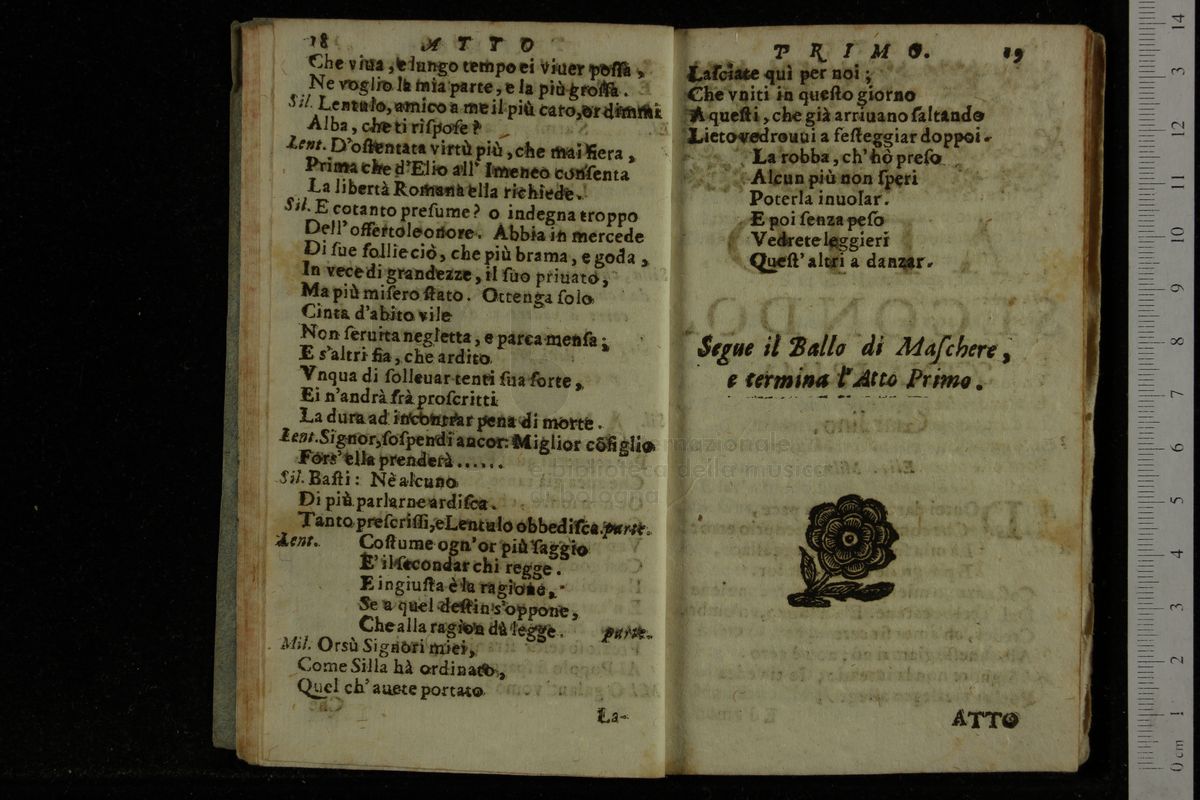 18 ATTO
Che viua, e lungo tempo ei viuer possa,
Ne voglio la mia parte, e la più grossa.
Sil. Lentulo, amico a me il più caro, or dimmi
Alba, che ti rispose?
Lent. D'ostentata virtù più, che mai fiera,
Prima che d'Elio all' Imeneo consenta
La libertà Romana ella richiede.
Sil. E cotanto presume? o indegna troppo
Dell' offerto leonore. Abbia in mercede
Di sue follie ciò, che più brama, e goda,
In vece di grandezze, il suo priuato,
Ma più misero stato. Ottenga solo
Cinta d'abito vile
Non seruita negletta, e parca mensa;
E s'altri fia, che ardito
Vnqua di solleuar tenti sua sorte,
Ei n'andrà frà proscritti
La dura ad incontrar pena di morte.
Lent. Signor, sospendi ancor: Miglior cõsiglio
Fors' ella prenderà......
Sil. Basti: Nè alcuno
Di più parlarne ardisca.
Tanto prescrissi, e Lentulo obbedisca. parte.
Lent. Costume ogn'or più saggio
E' il secondar chi regge.
E ingiusta è la ragione,
Se a quel destin s'oppone,
Che alla ragion dà legge. parte.
Mil. Orsù Signori miei,
Come Silla hà ordinato,
Quel ch'auete portato
La-
PRIMO. 19
Lasciate quì per noi;
Che vniti in questo giorno
A questi, che già arriuano saltando
Lieto vedrouui a festeggiar doppoi.
La robba, ch' hò preso
Alcun più non speri
Poterla inuolar.
E poi senza peso
Vedrete leggieri
Quest' altri a danzar.
Segue il Ballo di Maschere,
e termina l'Atto Primo.
ATTO
internazionale
e biblioteca della musica
di bologna
14
3
12
11
10
9
8
7
6
5
4
3
2
1
0 cm